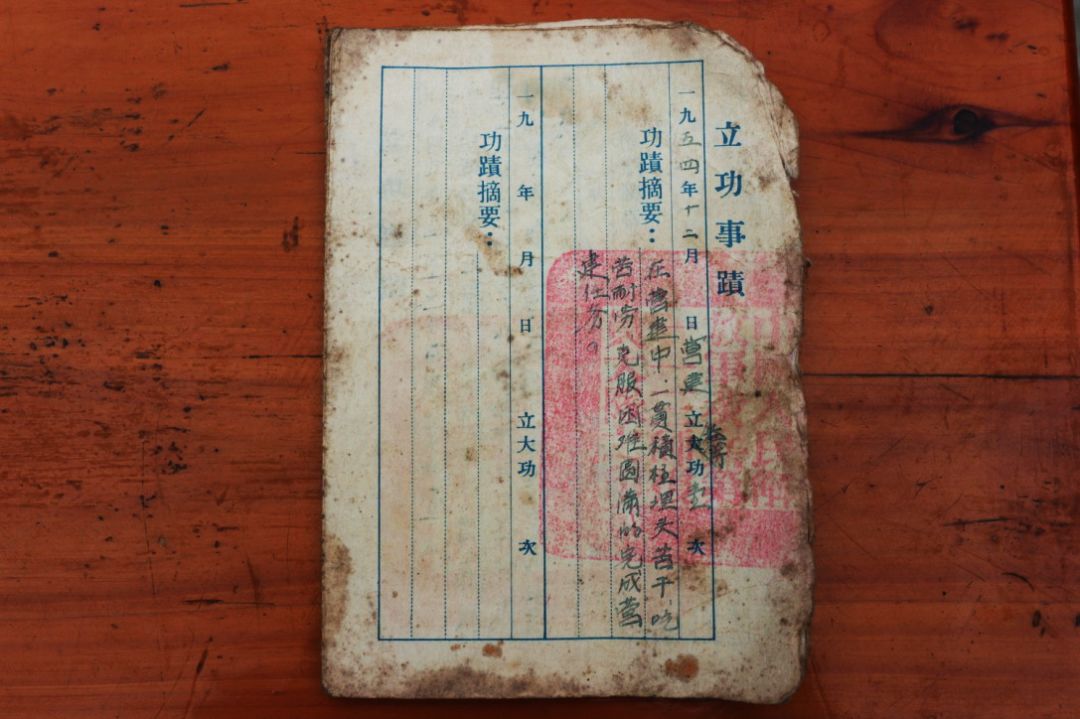 立功事蹟
一九五四年十二月 日營建立大功 次
功蹟摘要：
在営建中，一貫積極埋头苦干，吃
苦耐劳，克服困难圆满的完成营
建任务。
一九 年 月 日 立大功 次
功蹟摘要：